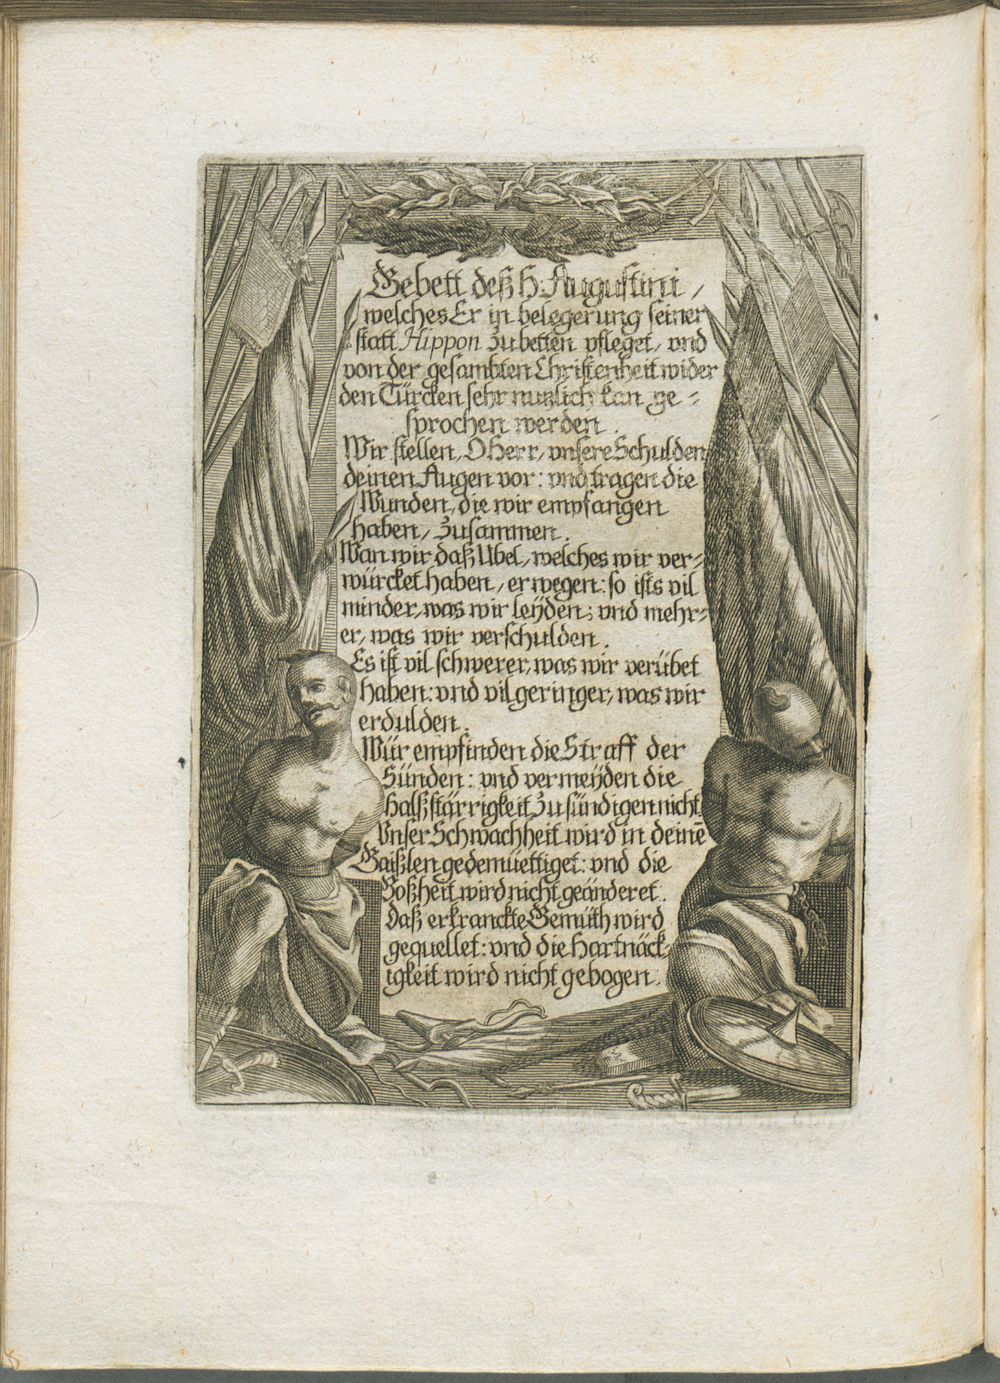 Gebett deß H. Augustini,
welches Er in belegerung seiner
statt Hippon zu betten pfleget, vnd
von der gesambten Christenheit wider
den Türcken sehr nutzlich kan ge⸗
sprochen werden.
Wir stellen, O Herr, vnsere Schulden
deinen Augen vor: vnd tragen die
Wunden, die wir empfangen
haben, zusammen.
Wan wir daß Ubel, welches wir ver⸗
würcket haben, erwegen: so ists vil
minder, was wir leÿden; vnd mehr⸗
er, was wir verschulden.
Es ist vil schwerer, was wir verübet
haben: vnd vil geringer, was wir
erdulden.
Wür empfinden die Straff der
Sünden: vnd vermeÿden die
Halßstärrigkeit zu sündigen nicht.
Vnser Schwachheit wird in deinē
Gaißlen gedemüettiget: vnd die
Boßheit wird nicht geänderet.
Daß erkranckte Gemüth wird
gequellet: vnd die Hartnäck⸗
igkeit wird nicht gebogen.